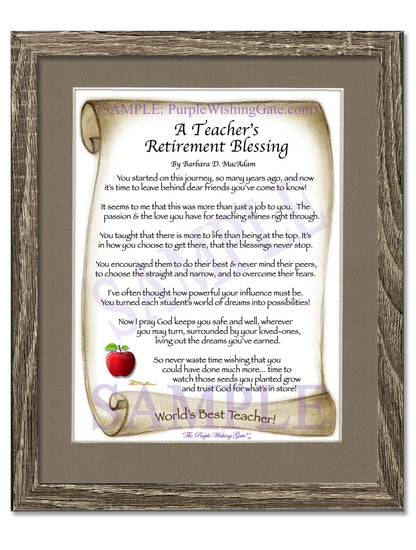 (SAMPLE: PurpleWishingGate.com)
A Teacher's
Retirement Blessing
By Barbara D. MacAdam
You started on this journey, so many years ago, and now
it's time to leave behind dear friends you've come to know!
It seems to me that this was more than just a job to you. The
passion & the love you have for teaching shines right through.
You taught that there is more to life than being at the top. It's
in how you choose to get there, that the blessings never stop.
You encouraged them to do their best & never mind their peers,
to choose the straight and narrow, and to overcome their fears.
I've often thought how powerful your influence must be.
You turned each student's world of dreams into possibilities!
Now I pray God keeps you safe and well, wherever
you may turn, surrounded by your loved-ones,
living out the dreams you've earned.
So never waste time wishing that you
could have done much more... time to
watch those seeds you planted grow
and trust God for what's in store!
SAMPLE
SAMPLE
World's Best Teacher!
The Purple Wishing Gate!